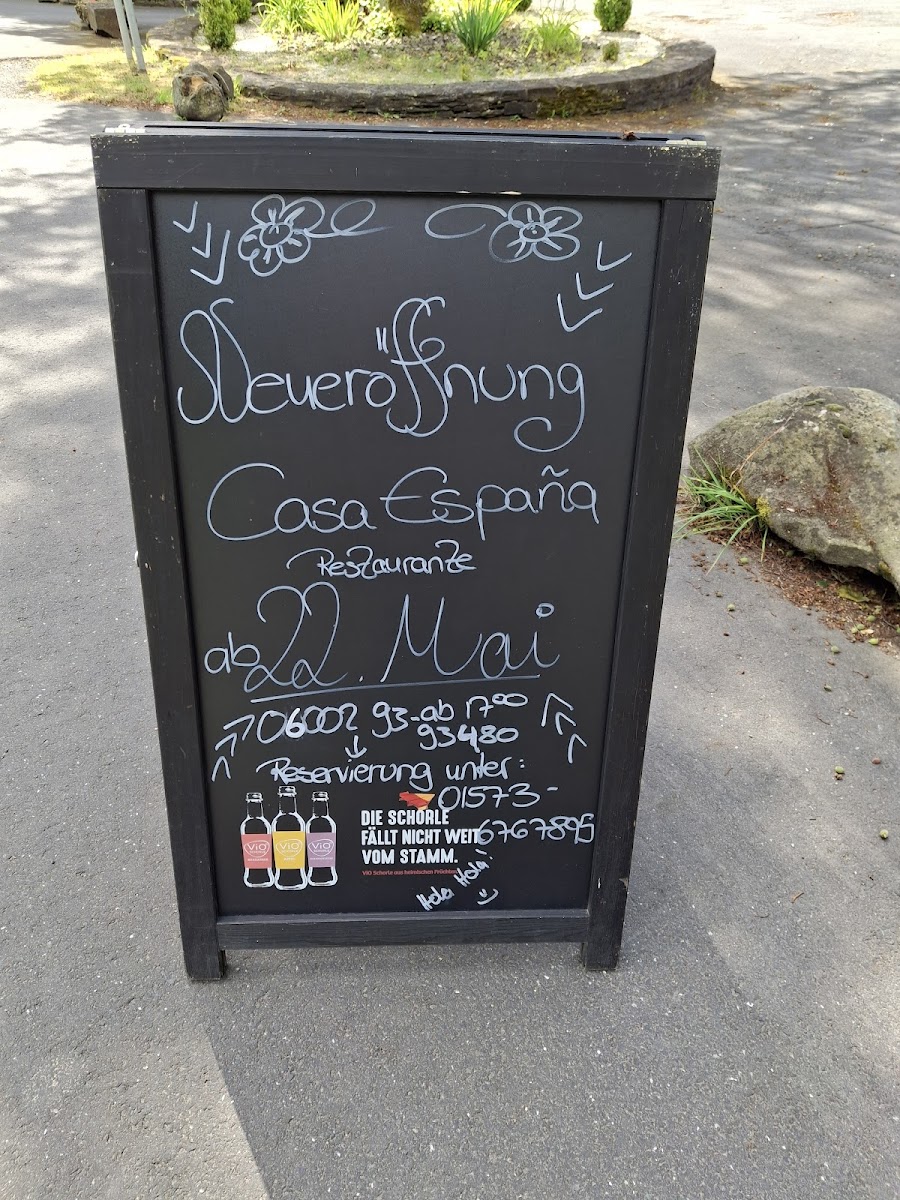 Neueröffnung
Casa España
Restaurante
ab 22. Mai
06002 93-ab 17⁰⁰
93480
Reservierung unter:
01573-
6767895
DIE SCHORLE
FÄLLT NICHT WEIT
VOM STAMM.
ViO Schorle aus heimischen Früchten
Hola Hola!
ViO
ViO
ViO